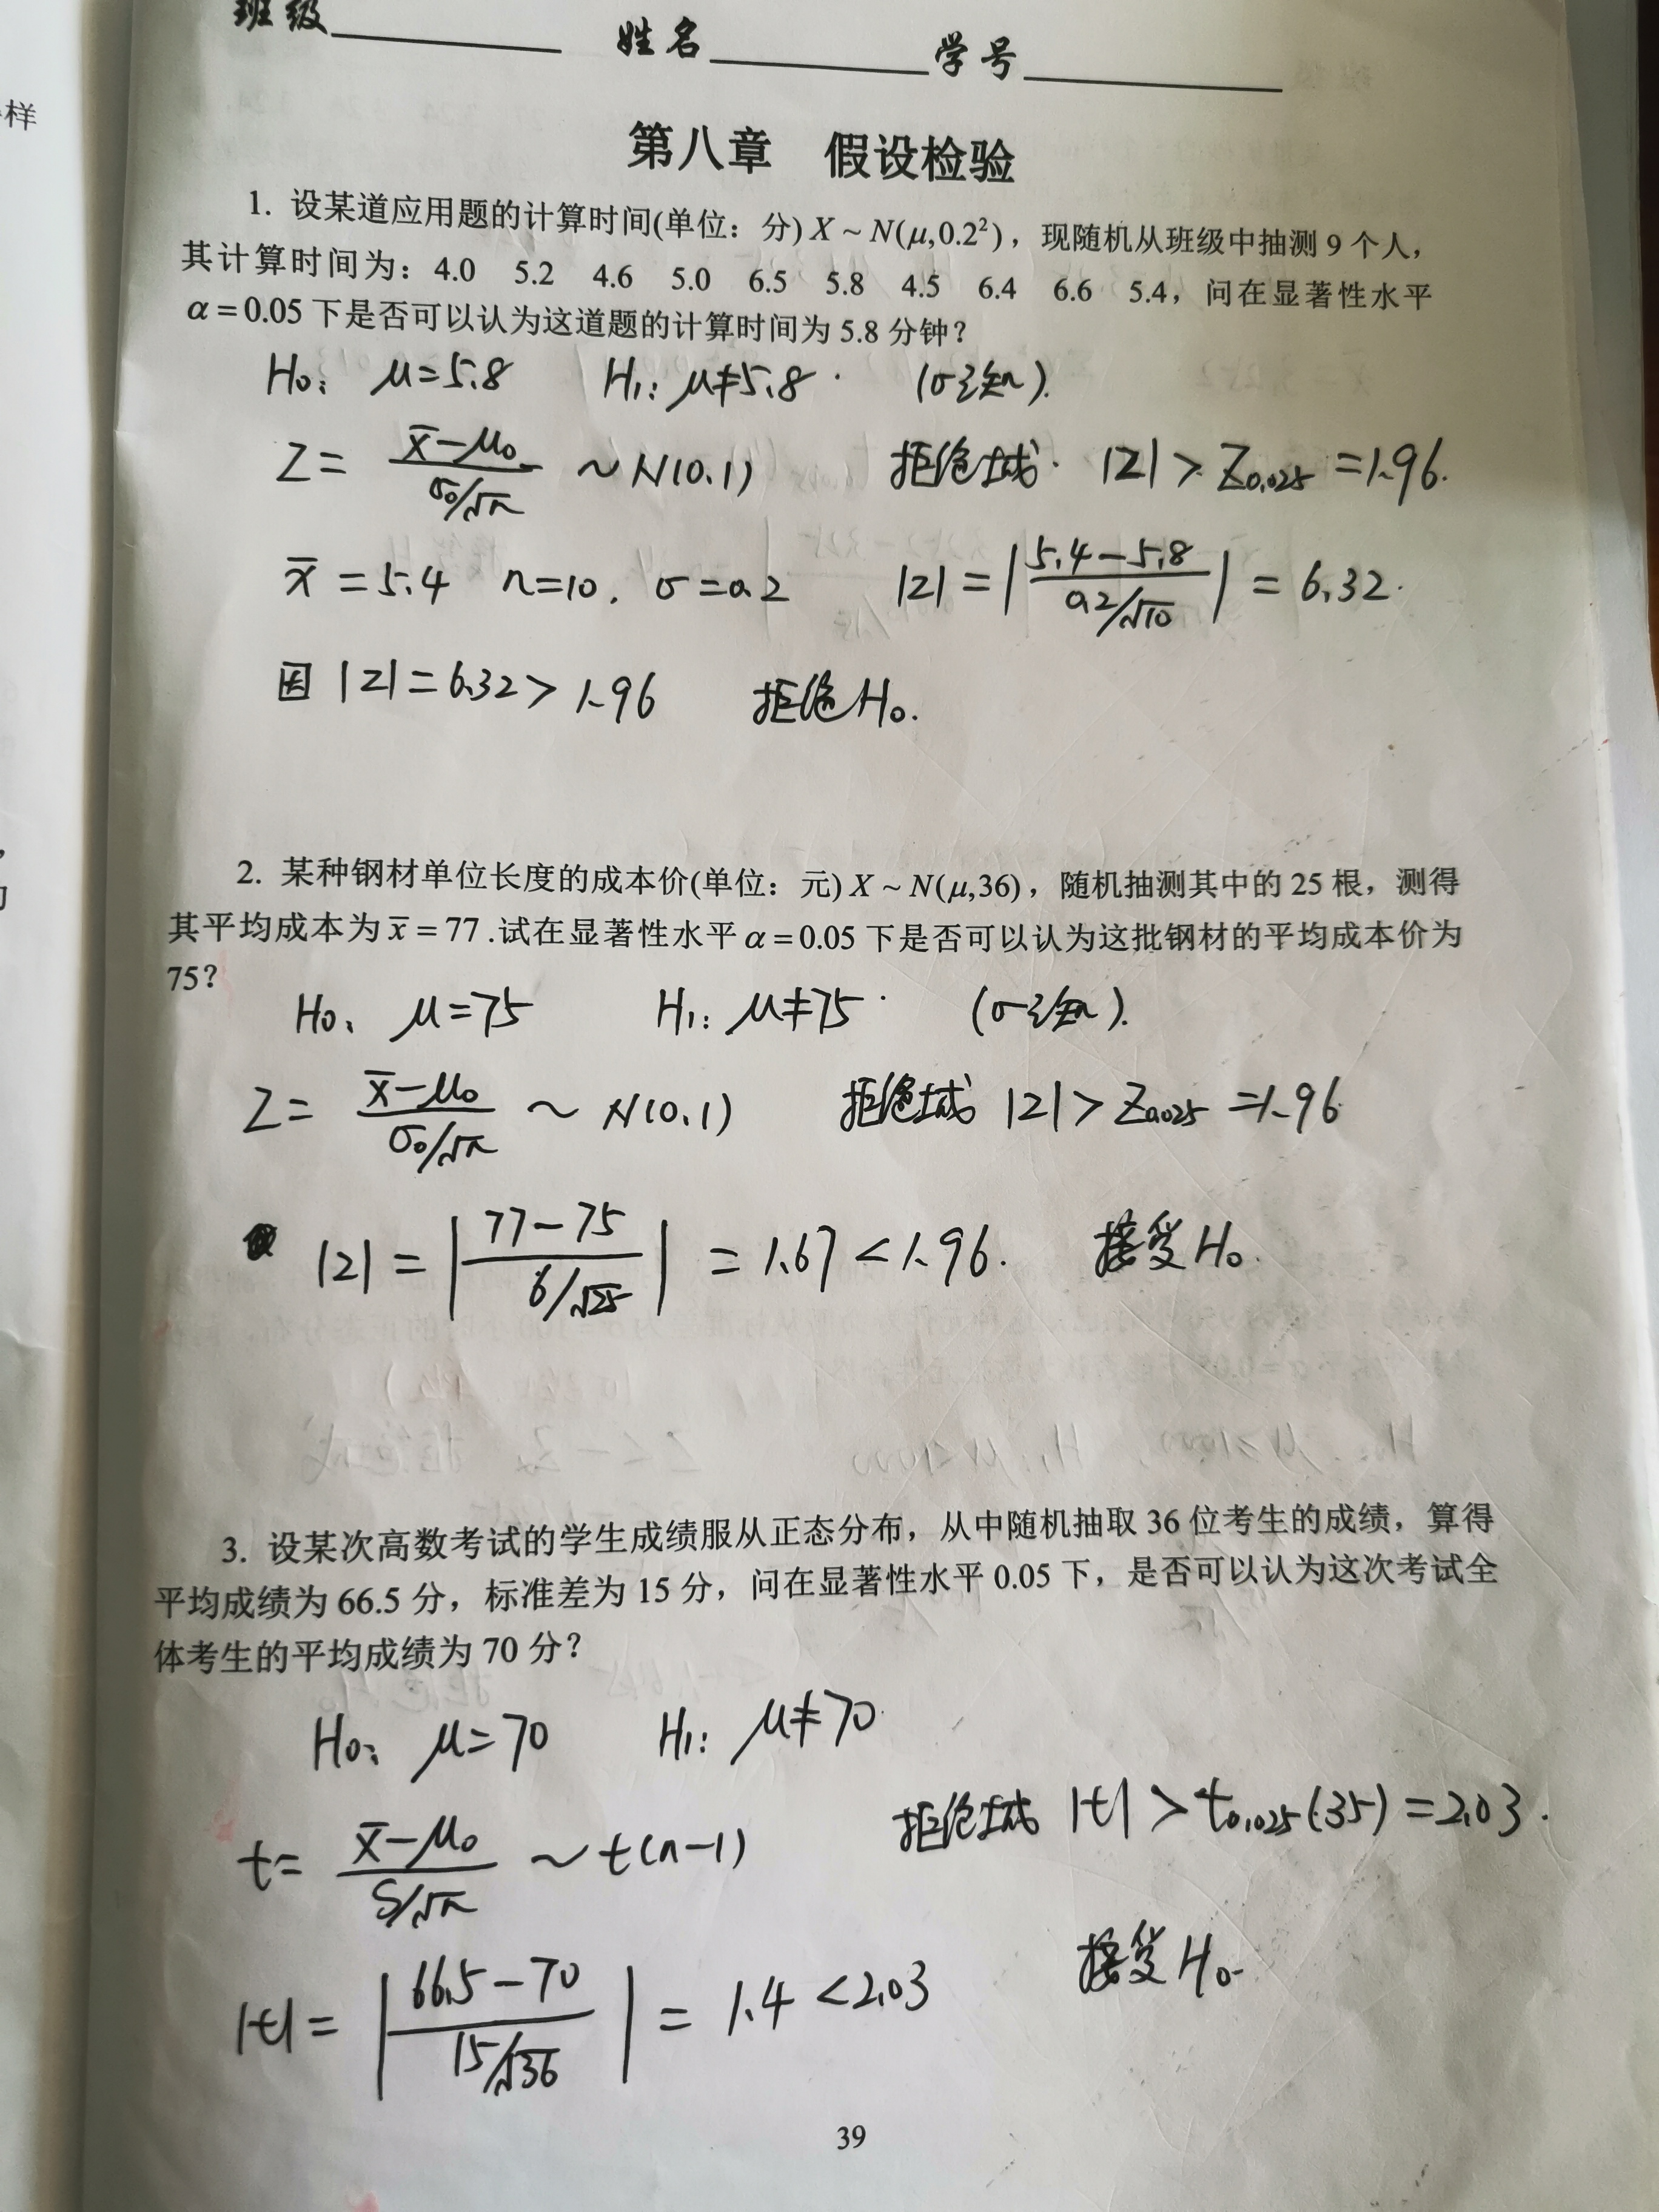 样
班级 姓名 学号
第八章 假设检验
1. 设某道应用题的计算时间(单位：分) X ~ N(μ,0.2²)，现随机从班级中抽测 9 个人，
其计算时间为：4.0 5.2 4.6 5.0 6.5 5.8 4.5 6.4 6.6 5.4，问在显著性水平
α = 0.05 下是否可以认为这道题的计算时间为 5.8 分钟？
H₀: μ=5.8 H₁: μ≠5.8. (σ已知).
Z = (x̄-μ₀)/(σ₀/√n) ~ N(0,1) 拒绝域. |Z| > Z₀.₀₂₅ = 1.96.
x̄ = 5.4 n=10. σ=0.2 |Z| = |(5.4-5.8)/(0.2/√10)| = 6.32.
因 |Z| = 6.32 > 1.96 拒绝H₀.
2. 某种钢材单位长度的成本价(单位：元) X ~ N(μ,36)，随机抽测其中的 25 根，测得
其平均成本为 x̄ = 77 .试在显著性水平 α = 0.05 下是否可以认为这批钢材的平均成本价为
75？
H₀: μ=75 H₁: μ≠75. (σ已知).
Z = (x̄-μ₀)/(σ₀/√n) ~ N(0,1) 拒绝域 |Z| > Z₀.₀₂₅ = 1.96
|Z| = |(77-75)/(6/√25)| = 1.67 < 1.96. 接受H₀.
3. 设某次高数考试的学生成绩服从正态分布，从中随机抽取 36 位考生的成绩，算得
平均成绩为 66.5 分，标准差为 15 分，问在显著性水平 0.05 下，是否可以认为这次考试全
体考生的平均成绩为 70 分？
H₀: μ=70 H₁: μ≠70.
t = (x̄-μ₀)/(S/√n) ~ t(n-1) 拒绝域 |t| > t₀.₀₂₅(35) = 2.03.
|t| = |(66.5-70)/(15/√36)| = 1.4 < 2.03 接受H₀.
39